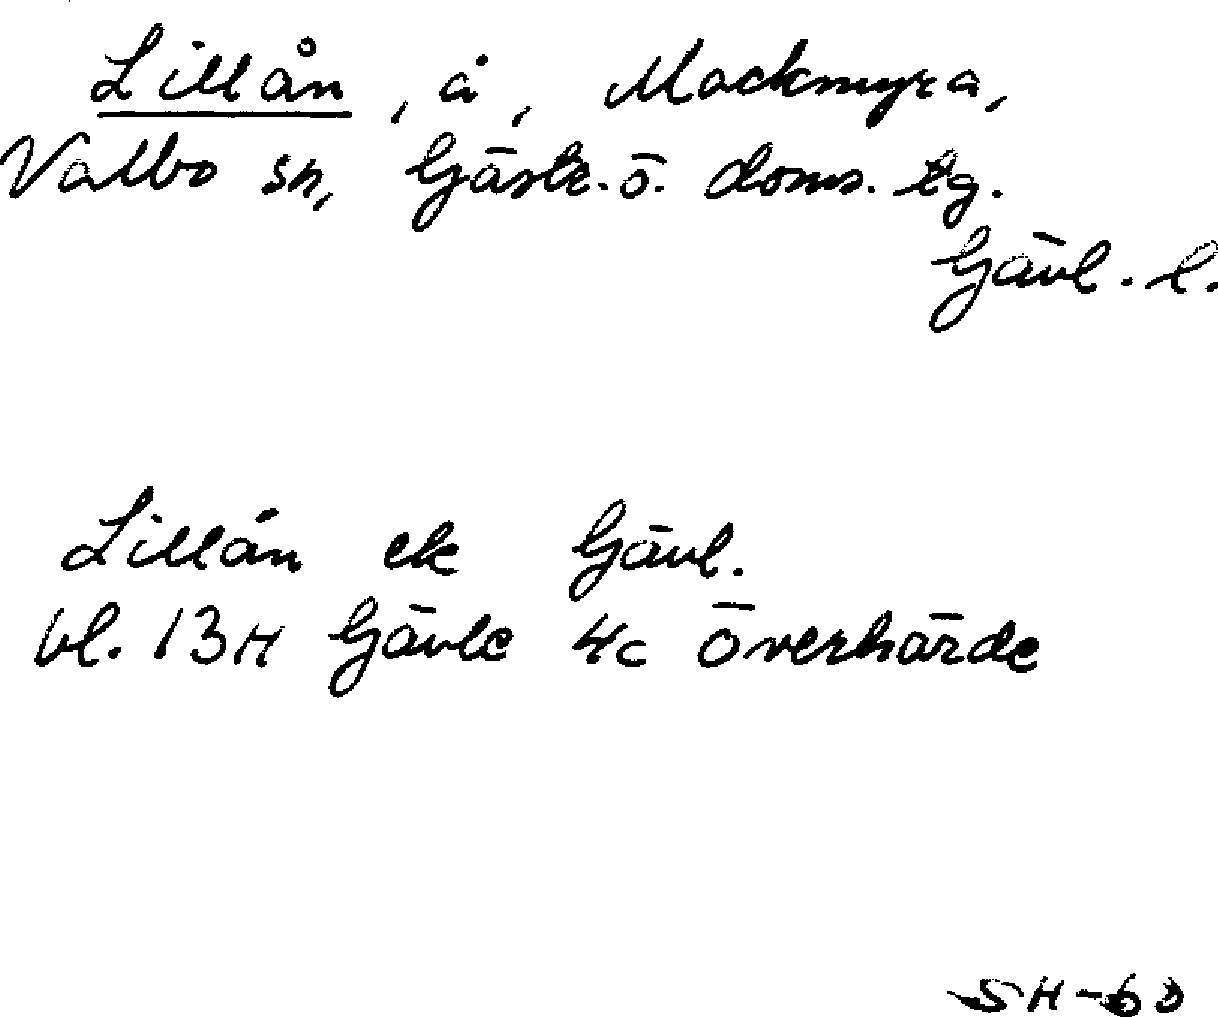 Lillån, å, Mackmyra,
Valbo sn, Gästr. ö. doms. tg.
Gävl. l.
Lillån ek Gävl.
bl. 13H Gävle 4c Överhärde
SH-60